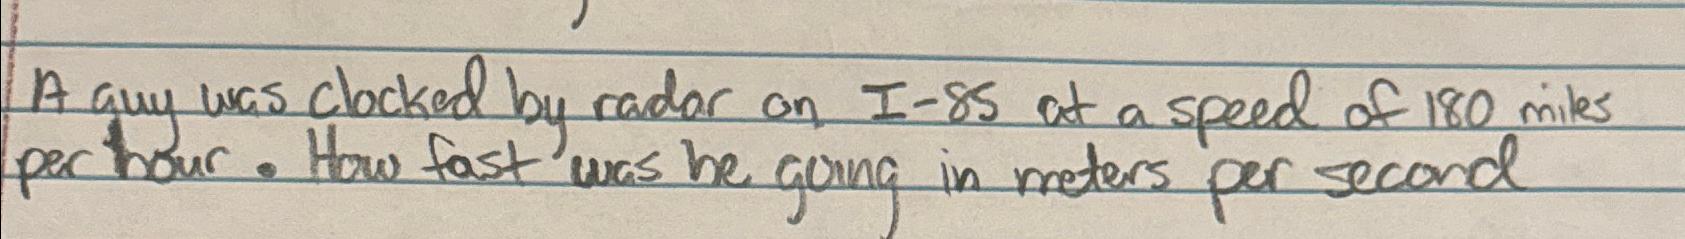 A guy was clocked by radar on I-85 at a speed of 180 miles
per hour. How fast was he going in meters per second